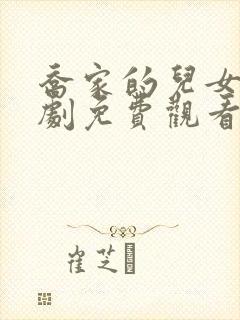 喬家的兒女
劇免費觀看
崔芝